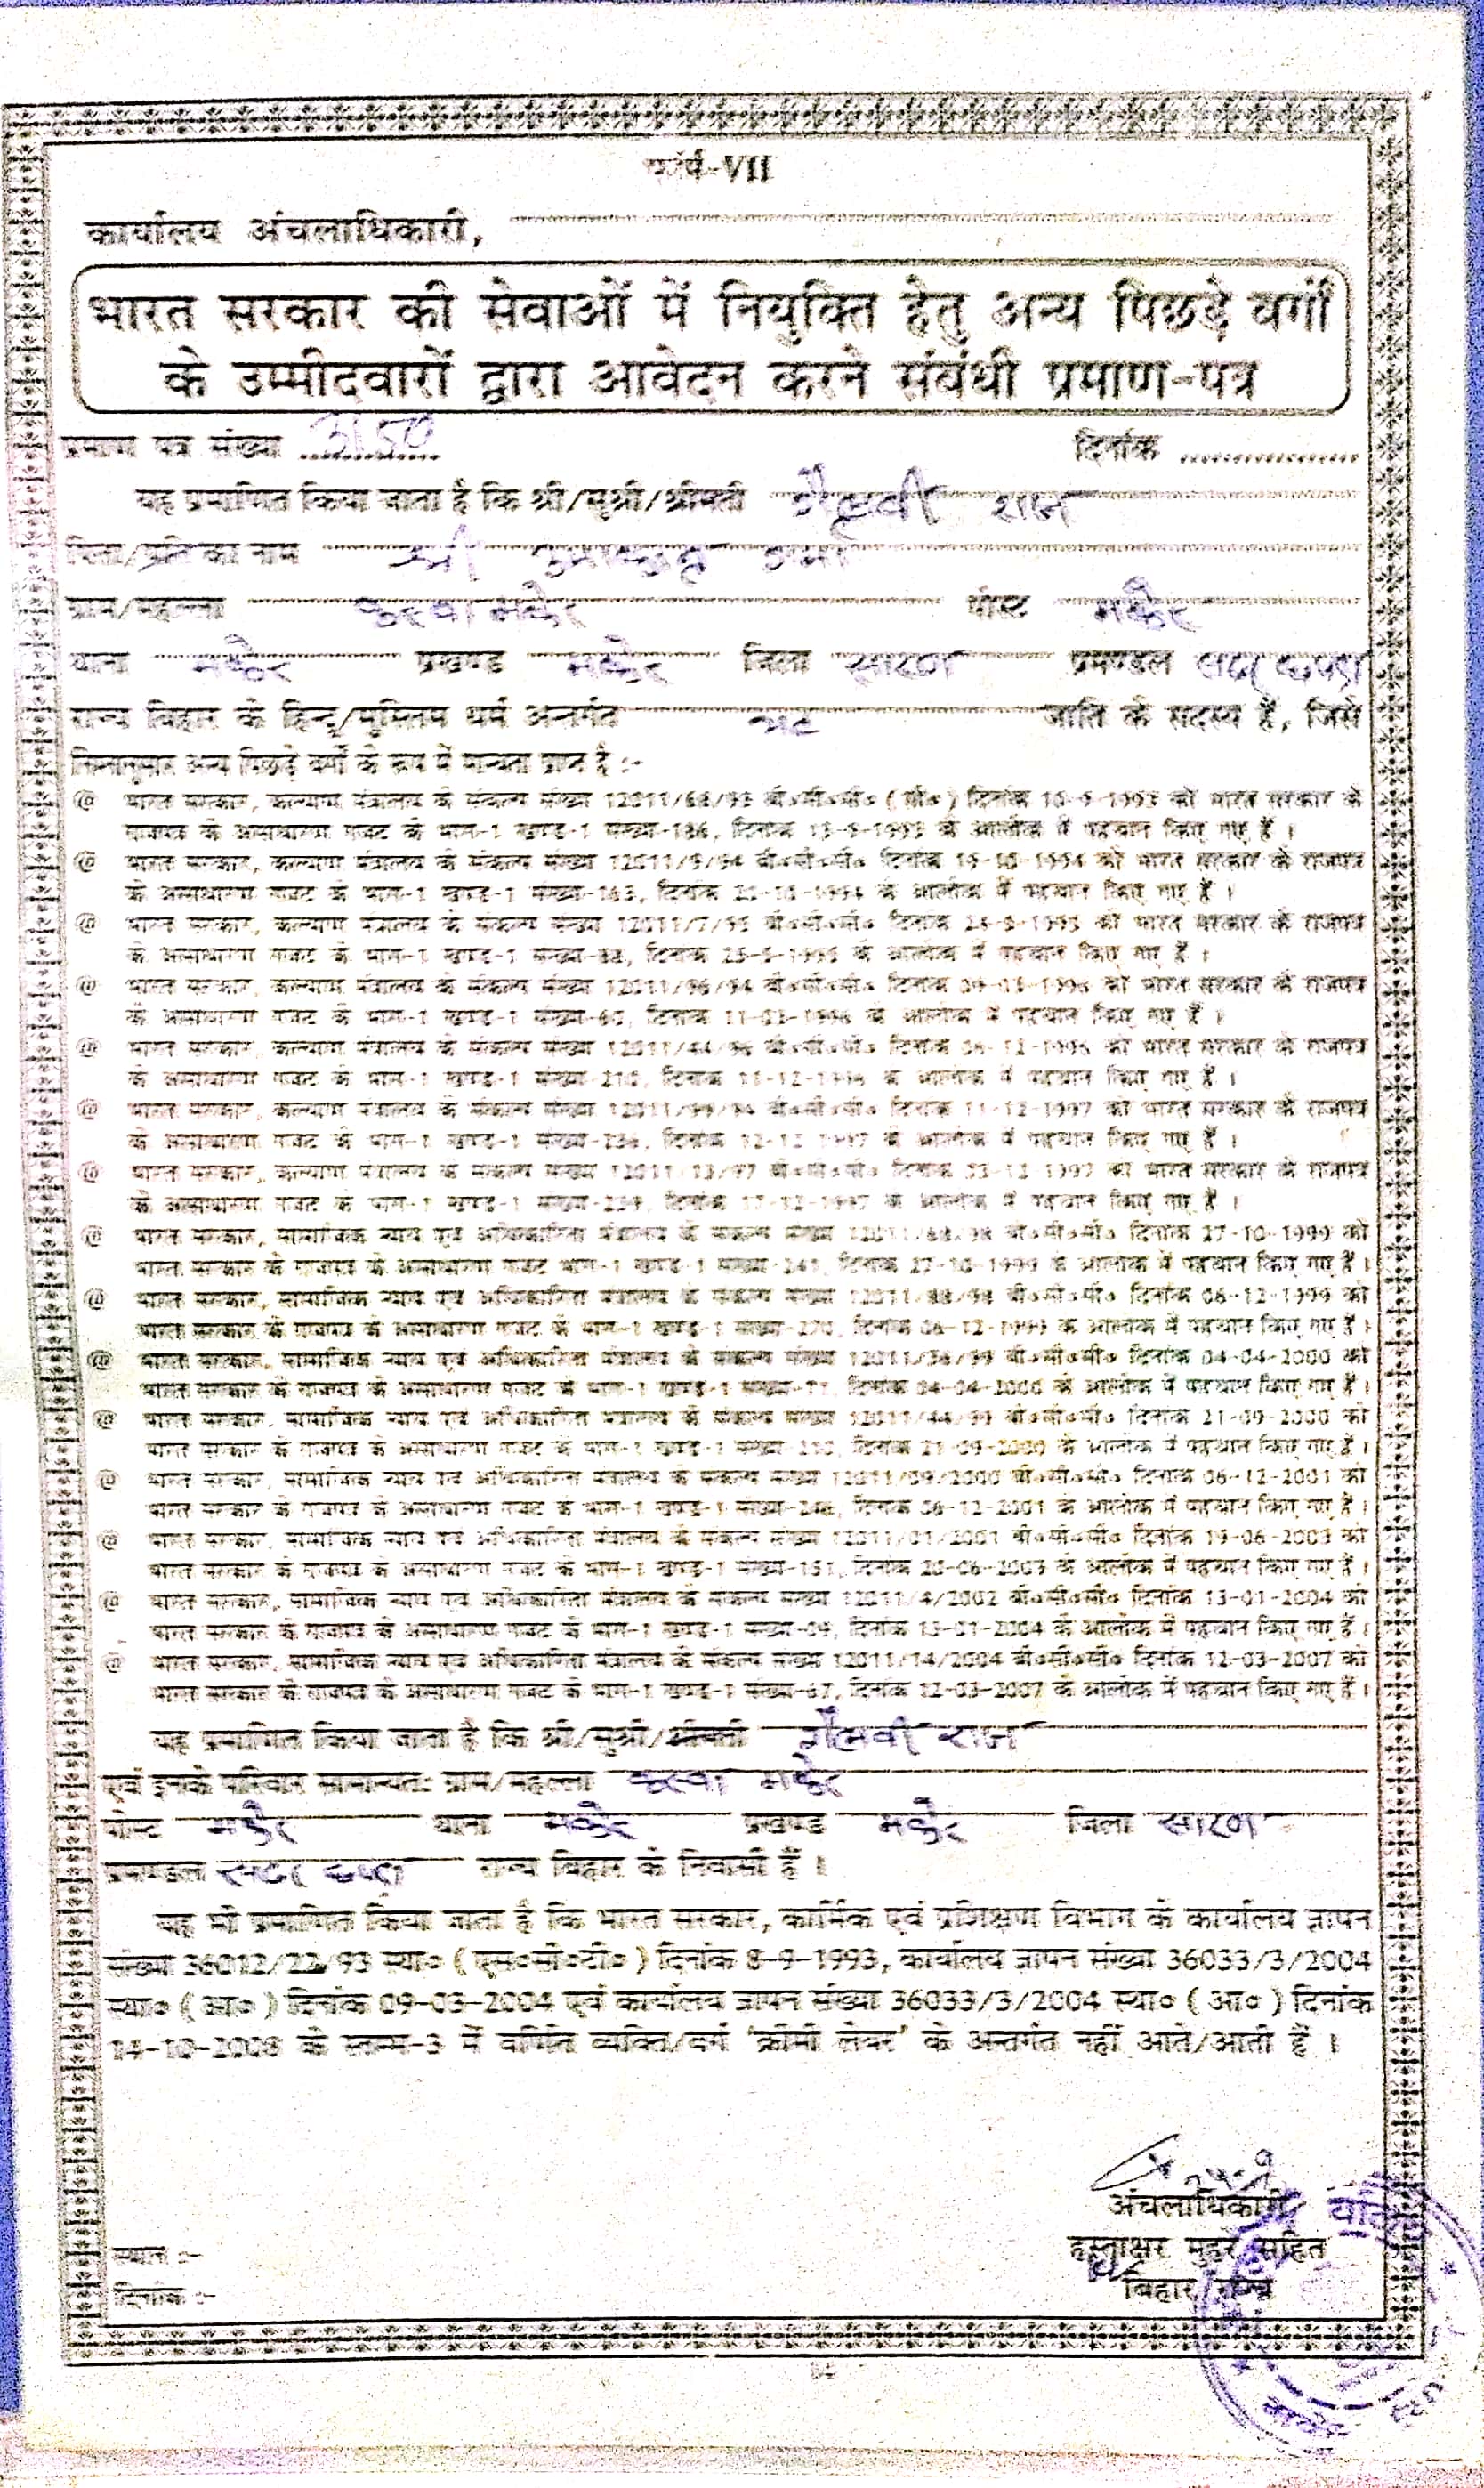 फार्म-VII
कार्यालय अंचलाधिकारी,
भारत सरकार की सेवाओं में नियुक्ति हेतु अन्य पिछड़े वर्गों
के उम्मीदवारों द्वारा आवेदन करने संबंधी प्रमाण-पत्र
प्रमाण पत्र संख्या 3150 दिनांक
यह प्रमाणित किया जाता है कि श्री/सुश्री/श्रीमती राज
पिता/पति का नाम श्री
ग्राम/महल्ला मकेर पोस्ट मकेर
थाना मकेर प्रखण्ड मकेर जिला सारण प्रमण्डल
राज्य बिहार के हिन्दू/मुस्लिम धर्म अन्तर्गत जाति के सदस्य हैं, जिसे
निम्नानुसार अन्य पिछड़े वर्गों के रूप में मान्यता प्राप्त है :-
@ भारत सरकार, कल्याण मंत्रालय के संकल्प संख्या 12011/68/93 बी०सी०सी० (सी०) दिनांक 10-9-1993 को भारत सरकार के
राजपत्र के असाधारण गजट के भाग-1 खण्ड-1 संख्या-186, दिनांक 13-9-1993 के आलोक में पहचान किए गए हैं ।
@ भारत सरकार, कल्याण मंत्रालय के संकल्प संख्या 12011/9/94 बी०सी०सी० दिनांक 19-10-1994 को भारत सरकार के राजपत्र
के असाधारण गजट के भाग-1 खण्ड-1 संख्या-163, दिनांक के आलोक में पहचान किए गए हैं ।
@ भारत सरकार, कल्याण मंत्रालय के संकल्प संख्या 12011/7/95 बी०सी०सी० दिनांक को भारत सरकार के राजपत्र
के असाधारण गजट के भाग-1 खण्ड-1 संख्या-88, दिनांक के आलोक में पहचान किए गए हैं ।
@ भारत सरकार, कल्याण मंत्रालय के संकल्प संख्या 12011/96/94 बी०सी०सी० दिनांक को भारत सरकार के राजपत्र
के असाधारण गजट के भाग-1 खण्ड-1 संख्या-60, दिनांक 11-03-1996 के आलोक में पहचान किए गए हैं ।
@ भारत सरकार, कल्याण मंत्रालय के संकल्प संख्या 12011/44/96 बी०सी०सी० दिनांक को भारत सरकार के राजपत्र
के असाधारण गजट के भाग-1 खण्ड-1 संख्या-210, दिनांक 11-12-1996 के आलोक में पहचान किए गए हैं ।
@ भारत सरकार, कल्याण मंत्रालय के संकल्प संख्या 12011/99/94 बी०सी०सी० दिनांक 11-12-1997 को भारत सरकार के राजपत्र
के असाधारण गजट के भाग-1 खण्ड-1 दिनांक के आलोक में पहचान किए गए हैं ।
@ भारत सरकार, कल्याण मंत्रालय के संकल्प संख्या 12011/13/97 बी०सी०सी० दिनांक 03-12-1997 को भारत सरकार के राजपत्र
के असाधारण गजट के भाग-1 खण्ड-1 संख्या-239, दिनांक के आलोक में पहचान किए गए हैं ।
@ भारत सरकार, सामाजिक न्याय एवं अधिकारिता मंत्रालय के संकल्प संख्या 12011/68/98 बी०सी०सी० दिनांक 27-10-1999 को
भारत सरकार के राजपत्र के असाधारण गजट भाग-1 खण्ड-1 संख्या-241, दिनांक 27-10-1999 के आलोक में पहचान किए गए हैं ।
@ भारत सरकार, सामाजिक न्याय एवं अधिकारिता मंत्रालय के संकल्प संख्या 12011/88/98 बी०सी०सी० दिनांक 06-12-1999 को
भारत सरकार के राजपत्र के असाधारण गजट के भाग-1 खण्ड-1 संख्या-270, दिनांक 06-12-1999 के आलोक में पहचान किए गए हैं ।
@ भारत सरकार, सामाजिक न्याय एवं अधिकारिता मंत्रालय के संकल्प संख्या 12011/36/99 बी०सी०सी० दिनांक 04-04-2000 को
भारत सरकार के राजपत्र के असाधारण गजट के भाग-1 खण्ड-1 संख्या-71, दिनांक 04-04-2000 के आलोक में पहचान किए गए हैं ।
@ भारत सरकार, सामाजिक न्याय एवं अधिकारिता मंत्रालय के संकल्प संख्या 12011/44/99 बी०सी०सी० दिनांक 21-09-2000 को
भारत सरकार के राजपत्र के असाधारण गजट के भाग-1 खण्ड-1 संख्या-210, दिनांक 21-09-2000 के आलोक में पहचान किए गए हैं ।
@ भारत सरकार, सामाजिक न्याय एवं अधिकारिता मंत्रालय के संकल्प संख्या 12011/09/2000 बी०सी०सी० दिनांक 06-12-2001 को
भारत सरकार के राजपत्र के असाधारण गजट के भाग-1 खण्ड-1 संख्या-246, दिनांक 06-12-2001 के आलोक में पहचान किए गए हैं ।
@ भारत सरकार, सामाजिक न्याय एवं अधिकारिता मंत्रालय के संकल्प संख्या 12011/01/2001 बी०सी०सी० दिनांक 19-06-2003 को
भारत सरकार के राजपत्र के असाधारण गजट के भाग-1 खण्ड-1 संख्या-151, दिनांक 20-06-2003 के आलोक में पहचान किए गए हैं ।
@ भारत सरकार, सामाजिक न्याय एवं अधिकारिता मंत्रालय के संकल्प संख्या 12011/4/2002 बी०सी०सी० दिनांक 13-01-2004 को
भारत सरकार के राजपत्र के असाधारण गजट के भाग-1 खण्ड-1 संख्या-09, दिनांक 13-01-2004 के आलोक में पहचान किए गए हैं ।
@ भारत सरकार, सामाजिक न्याय एवं अधिकारिता मंत्रालय के संकल्प संख्या 12011/14/2004 बी०सी०सी० दिनांक 12-03-2007 को
भारत सरकार के राजपत्र के असाधारण गजट के भाग-1 खण्ड-1 संख्या-67, दिनांक 12-03-2007 के आलोक में पहचान किए गए हैं ।
यह प्रमाणित किया जाता है कि श्री/सुश्री/श्रीमती राज
एवं इनके परिवार सामान्यतः ग्राम/महल्ला मकेर
पोस्ट मकेर थाना मकेर प्रखण्ड मकेर जिला सारण
प्रमण्डल राज्य बिहार के निवासी हैं ।
यह भी प्रमाणित किया जाता है कि भारत सरकार, कार्मिक एवं प्रशिक्षण विभाग के कार्यालय ज्ञापन
संख्या 36012/22/93 स्था० (एस०सी०टी०) दिनांक 8-9-1993, कार्यालय ज्ञापन संख्या 36033/3/2004
स्था० (आ०) दिनांक 09-03-2004 एवं कार्यालय ज्ञापन संख्या 36033/3/2004 स्था० (आ०) दिनांक
14-10-2008 के स्तम्भ-3 में वर्णित व्यक्ति/वर्ग 'क्रीमी लेयर' के अन्तर्गत नहीं आते/आती हैं ।
अंचलाधिकारी
स्थान :- हस्ताक्षर मुहर सहित
दिनांक :- बिहार राज्य